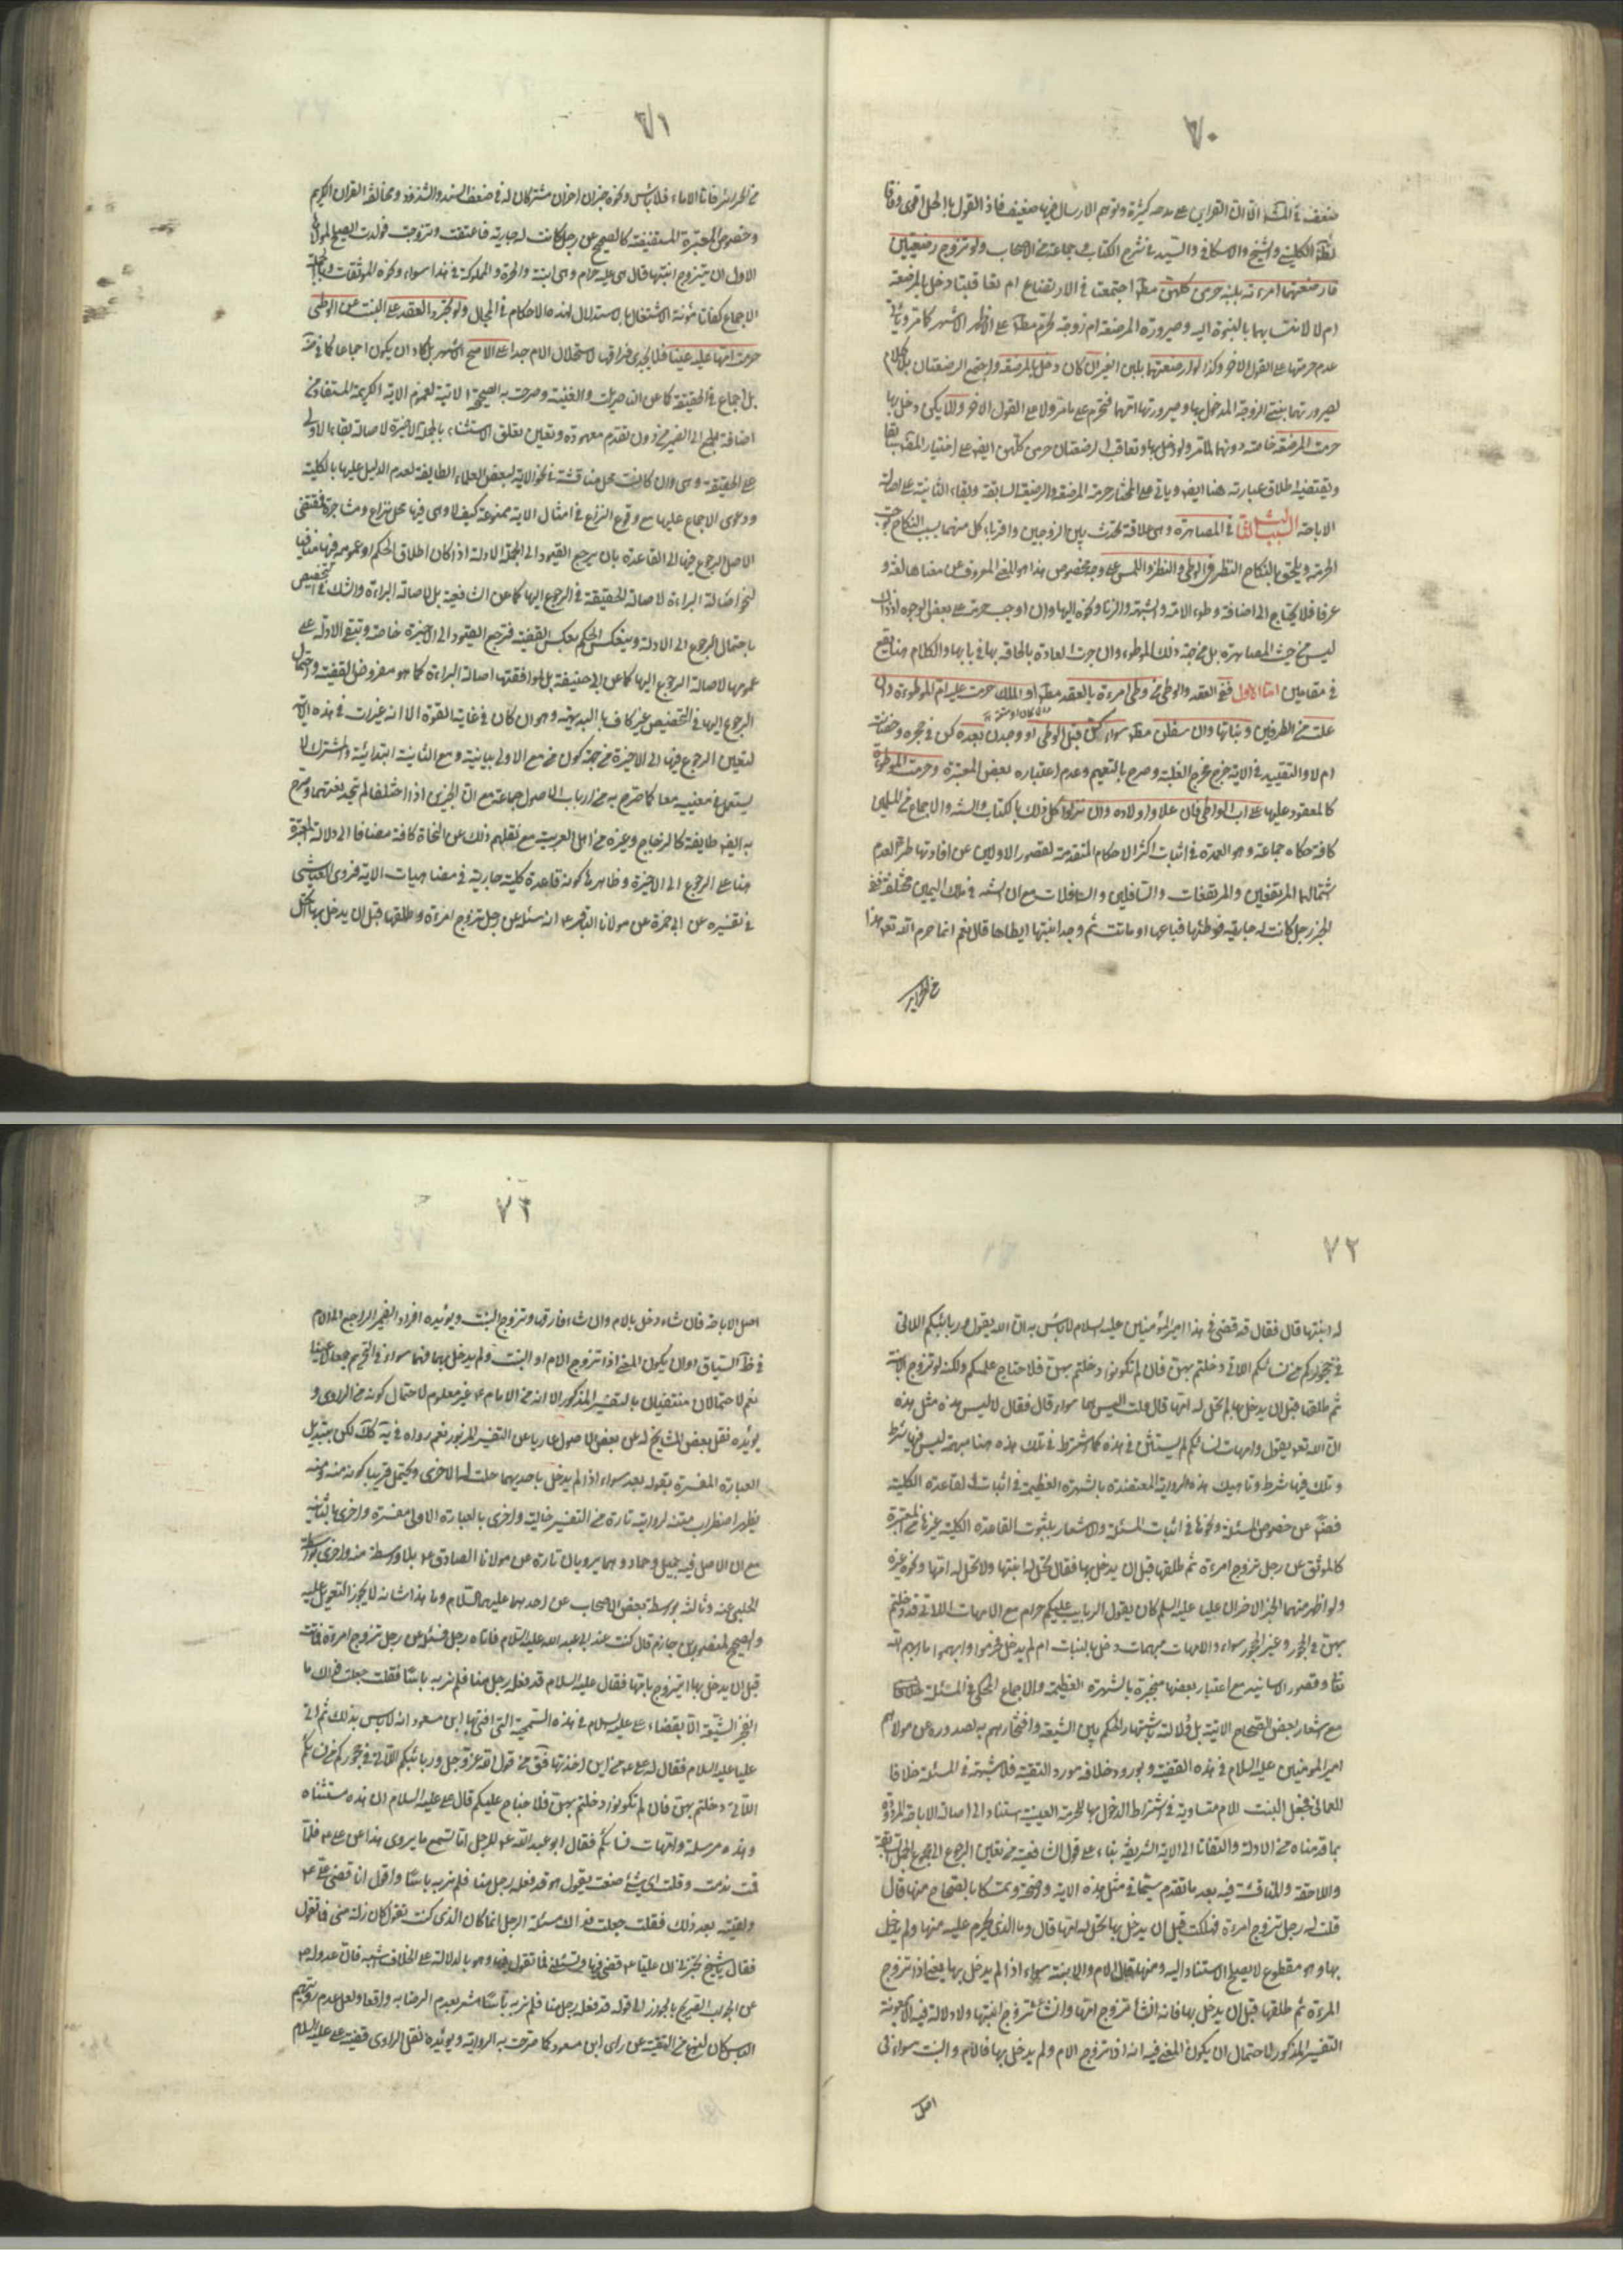 ٧٠
ضعف في المشهور الا ان القراين على مدحه كثيرة وتوهم الارسال فيها ضعيف فاذا القول بالحل اقوى وفاقا
لثقة الكليني والشيخ والاسكافي والسيد في شرح الكتاب وجماعة من الاصحاب ولو تزوج رضيعتين
فارضعتهما امرءته بلبنه حرمن كلهن مطلقا اجتمعتا في الارتضاع ام تعاقبتا دخل بالمرضعة
ام لا لانتسابهما بالبنوة اليه وصيرورة المرضعة ام زوجة فتحرم مطلقا على الاظهر الاشهر كما مر وياتي
عدم حرمتها على القول الاخر وكذا لو ارضعتهما بلبن الغير ان كان دخل بالمرضعة واجتمع الرضعتان بلا كلام
لصيرورتهما بنتي الزوجة المدخول بها وصيرورتها امهما فتحرم على ما مر ولا على القول الاخر والا يكن دخل بها
حرمت المرضعة خاصة دونهما لما مر ولو دخل بها وتعاقب الرضعتان حرمن كلهن ايضا على اختيار المصنف سابقا
ويقتضيه اطلاق عبارته هنا ايضا وياتي على المختار حرمة المرضعة والرضيعة السابقة وبقاء الثانية على اصالة
الاباحة السبب الثالث في المصاهرة وهي علاقة تحدث بين الزوجين واقرباء كل منهما بسبب النكاح توجب
الحرمة ويلحق بالنكاح النظر في الوطي والنظر واللمس على وجه مخصوص هذا هو المعنى المعروف من معناها لغة و
عرفا فلا يحتاج الى اضافة وطوء الامة والشبهة والزنا ونحوه اليها وان اوجب حرمة على بعض الوجوه اذ ذاك
ليس من حيث المصاهرة بل من جهة ذلك الموطوء وان جرت العادة بالحاقه بها في بابها والكلام هنا يقع
في مقامين اما الاول ففي العقد والوطي من وطي امرءة بالعقد مطلقا او الملك حرمت عليه ام الموطوءة وان
علت من الطرفين وبناتها وان سفلن مطلقا سواء كن قبل الوطي او وجدن بعده كن في حجره وحضانته
ام لا والتقييد في الاية خرج مخرج الغلبة وصرح بالتعميم وعدم اعتباره بعض المعتبرة وحرمت الموطوءة
كالمعقود عليها على اب الواطي فان علا واولاده وان نزلوا كل ذلك بالكتاب والسنة والاجماع من المسلمين
كافة حكاه جماعة وهو العمدة في اثبات اكثر الاحكام المتقدمة لقصور الاولين عن افادتها طرا لعدم
شمالهما المرتفعين والمرتفعات والسافلين والسافلات مع ان السنة في ملك اليمين مختلفة ففي
الخبر رجل كانت له جارية فوطئها فباعها او ماتت ثم وجد ابنتها ايطاها قال نعم انما حرم الله تعالى هذا
من الحراير
٧١
من الحراير فاما الاماء فلا باس ونحوه خبران اخران مشتركان له في ضعف السند والشذوذ ومخالفة القران الكريم
وخصوص المعتبرة المستفيضة كالصحيح عن رجل كانت له جارية فاعتقت وتزوجت فولدت ايصلح لمولاها
الاول ان يتزوج ابنتها قال هي عليه حرام وهي ابنته والحرة والمملوكة في هذا سواء ونحوه الموثقات وبالجملة
الاجماع كفانا مؤنة الاشتغال بالاستدلال لهذه الاحكام في المجال ولو تجرد العقد على البنت عن الوطي
حرمت امها عليه عينا فلا يجدى فراقها لاستحلال الام جدا على الاصح الاشهر بل كاد ان يكون اجماعا كما في
بل اجماع في الحقيقة كما عن الناصريات والغنية وصرحت به الصحيحة الاتية لعموم الاية الكريمة المستفاد من
اضافة الجمع الى الضمير من دون تقدم معهودة وتعين تعلق الاستثناء بالجملة الاخيرة لاصالة بقاء الاولى
على الحقيقة وهي وان كانت محل مناقشة في نحو الاية لبعض العلماء الطايفة لعدم الدليل عليها بالكلية
ودعوى الاجماع عليها مع وقوع النزاع في امثال الاية ممنوعة كيف لا وهي فيها محل نزاع ومشاجرة فمقتضى
الاصل الرجوع فيها الى القاعدة بان يرجع القيود الى الجملة الادلة اذا كان اطلاق الحكم او عمومه فيها منافيا
لنحو اصالة البراءة لا صالة الحقيقة في الرجوع اليها كما عن الشافعية بل لاصالة البراءة والشك في التخصيص
باحتمال الرجوع الى الادلة وينعكس الحكم بعكس القضية فترجع القيود الى الاخيرة خاصة وتبقى الادلة على
عمومها لاصالة الرجوع اليها كما عن ابي حنيفة بل لموافقتها اصالة البراءة كما هو مفروض القضية واحتمال
الرجوع اليها في التخصيص غير كاف بالبديهة وهو ان كان في غاية القوة الا انه غيرات في هذه الاية
لتعين الرجوع فيها الى الاخيرة من جهة كون من مع الاولى بيانية ومع الثانية ابتدائية والمشترك لا
يستعمل في معنييه معا كما صرح به من ارباب الاصول جماعة مع ان الخبرين اذا اختلفا لم تتحد نعتهما وصرح
به ايضا طايفة كالزجاج وغيره من اهل العربية مع نقلهم ذلك عن النحاة كافة مضافا الى دلالة المعتبرة
هنا على الرجوع الى الاخيرة وظاهرها كونه قاعدة كلية جارية في مضاهيات الاية فروى العياشي
في تفسيره عن ابي حمزة عن مولانا الباقر ع انه سئل عن رجل تزوج امرءة وطلقها قبل ان يدخل بها اتحل
٧٢
له ابنتها قال فقال قد قضى في هذا امير المؤمنين عليه السلام لا باس به ان الله يقول وربائبكم اللاتي
في حجوركم من نسائكم اللاتي دخلتم بهن فان لم تكونوا دخلتم بهن فلا جناح عليكم ولكنه لو تزوج الابنة
ثم طلقها قبل ان يدخل بها لم تحل له امها قال قلت اليس هما سواء قال فقال لا ليس هذه مثل هذه
ان الله تعالى يقول وامهات نسائكم لم يستثن في هذه كما اشترط في تلك هذه هنا مبهمة ليس فيها شرط
وتلك فيها شرط وناهيك هذه الرواية المعتضدة بالشهرة العظيمة في اثبات القاعدة الكلية
فضلا عن خصوص المسئلة ونحوها في اثبات المسئلة والاشعار بثبوت القاعدة الكلية غيرها من المعتبرة
كالموثق عن رجل تزوج امرءة ثم طلقها قبل ان يدخل بها فقال تحل له ابنتها ولا تحل له امها ونحوه غيره
ولو اظهر منهما الخبر الاخر ان عليا عليه السلم كان يقول الربايب عليكم حرام مع الامهات اللاتي قد دخلتم
بهن في الحجور وغير الحجور سواء والامهات مبهمات دخل بالبنات ام لم يدخل فحرموا وابهموا ما ابهم الله
تعالى وقصور الاسانيد مع اعتبار بعضها منجبرة بالشهرة العظيمة والاجماع المحكي في المسئلة
مع اشعار بعض الصحاح الاتية بل ودلالته باشتهار الحكم بين الشيعة وافتخارهم به لصدوره عن مولاهم
امير المومنين عليه السلام في هذه القضية وبورود خلافه مورد التقية فلا شبهة في المسئلة خلافا
للعماني فجعل البنت الام متساوية في اشتراط الدخول بها للحرمة العينية استنادا الى اصالة الاباحة المردودة
بما قدمناه من الادلة والتفاتا الى الاية الشريفة بناء على قول الشافعية من تعين الرجوع الى جميع الجمل السابقة
واللاحقة والمناقشة فيه بعد ما تقدم سيما في مثل هذه الاية واضحة وتمسكا بالصحاح منها قال
قلت له رجل تزوج امرءة فهلكت قبل ان يدخل بها تحل له امها قال وما الذي يحرم عليه منها ولم يدخل
بها وهو مقطوع لا يصلح الاستناد اليه ومنها قال الام والابنة سواء اذا لم يدخل بها يعني اذا تزوج
المرءة ثم طلقها قبل ان يدخل بها فانه ان شاء تزوج امها وان شاء تزوج ابنتها ولا دلالة فيه الا بمعونة
التفسير المذكور لاحتمال ان يكون المعنى فيه انه اذا تزوج الام ولم يدخل بها فالام والبنت سواء في
اصل
٧٣
اصل الاباحة فان شاء دخل بالام وان شاء فارقها وتزوج البنت ويؤيده افراد الضمير الراجع الى الام
في ظاهر السياق او ان يكون المعنى اذا تزوج الام او البنت ولم يدخل بهما فهما سواء في التحريم جمعا لا عينا
نعم لاحتمالان منتفيان بالتفسير المذكور الا انه من الامام ع غير معلوم لاحتمال كونه من الراوي و
يؤيده نقل بعض المشايخ له عن بعض الاصول عاريا عن التفسير المزبور نعم رواه في يه كذلك لكن بتبديل
العبارة المفسرة بقوله بعد سواء اذا لم يدخل باحديهما حلت له الاخرى ويحتمل قريبا كونه منه ومنه
يظهر اضطراب متنه لروايته تارة من التفسير خالية واخرى بالعبارة الاولى مفسرة واخرى بالثانية
مع ان الاصل فيه جميل وحماد وهما يرويان تارة عن مولانا الصادق ع بلا واسطة منه واخرى بواسطة
الحلبي عنه وثالثة بوسطة بعض الاصحاب عن احدهما عليهما السلام وما هذا شانه لا يجوز التعويل عليه
والصحيح لمنصور بن حازم قال كنت عند ابي عبد الله عليه السلام فاتاه رجل فسئله عن رجل تزوج امرءة فماتت
قبل ان يدخل بها ايتزوج بامها فقال عليه السلام قد فعله رجل منا فلم نر به باسا فقلت جعلت فداك ما
تفخر الشيعة الا بقضاء علي عليه السلام في هذه الشمخية التي افتى بها ابن مسعود انه لا باس بذلك ثم اتى
عليا عليه السلام فقال له علي ع من اين اخذتها فقال من قول الله عز وجل وربائبكم اللاتي في حجوركم من نسائكم
اللاتي دخلتم بهن فان لم تكونوا دخلتم بهن فلا جناح عليكم قال علي عليه السلام ان هذه مستثناة
وهذه مرسلة وامهات نسائكم فقال ابو عبد الله ع للرجل اما تسمع ما يروى هذا عن علي ع فلما
قمت ندمت وقلت اي شئ صنعت يقول هو قد فعله رجل منا فلم نر به باسا واقول انا قضى علي ع
ولقيته بعد ذلك فقلت جعلت فداك مسئلة الرجل انما كان الذي كنت تقول كان زلة مني فما تقول
فقال يا شيخ تخبرني ان عليا ع قضى فيها وتسئلني فما تقول فيها وهو بالدلالة على الخلاف اشبه فان عدوله ع
عن الجواب الصريح بالجواز الى قوله قد فعله رجل منا فلم نر به باسا مشعر بعدم الرضا به واقعا ولعل عدم رويتهم
الباس كان لنوع من التقية عن راى ابن مسعود كما صرحت به الرواية ويؤيده نقل الراوى قضية علي عليه السلام